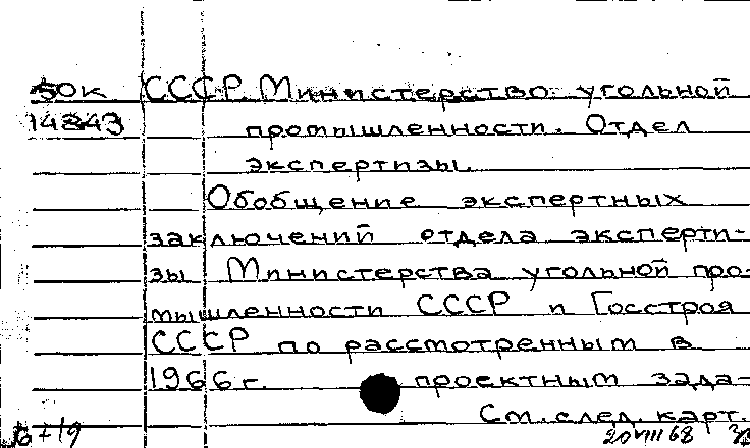 50к СССР. Министерство угольной
14243 промышленности. Отдел
экспертизы.
Обобщение экспертных
заключений отдела эксперти-
зы Министерства угольной про-
мышленности СССР и Госстроя
СССР по рассмотренным в
1966г. проектным зада-
См. след. карт.
20 VIII 68